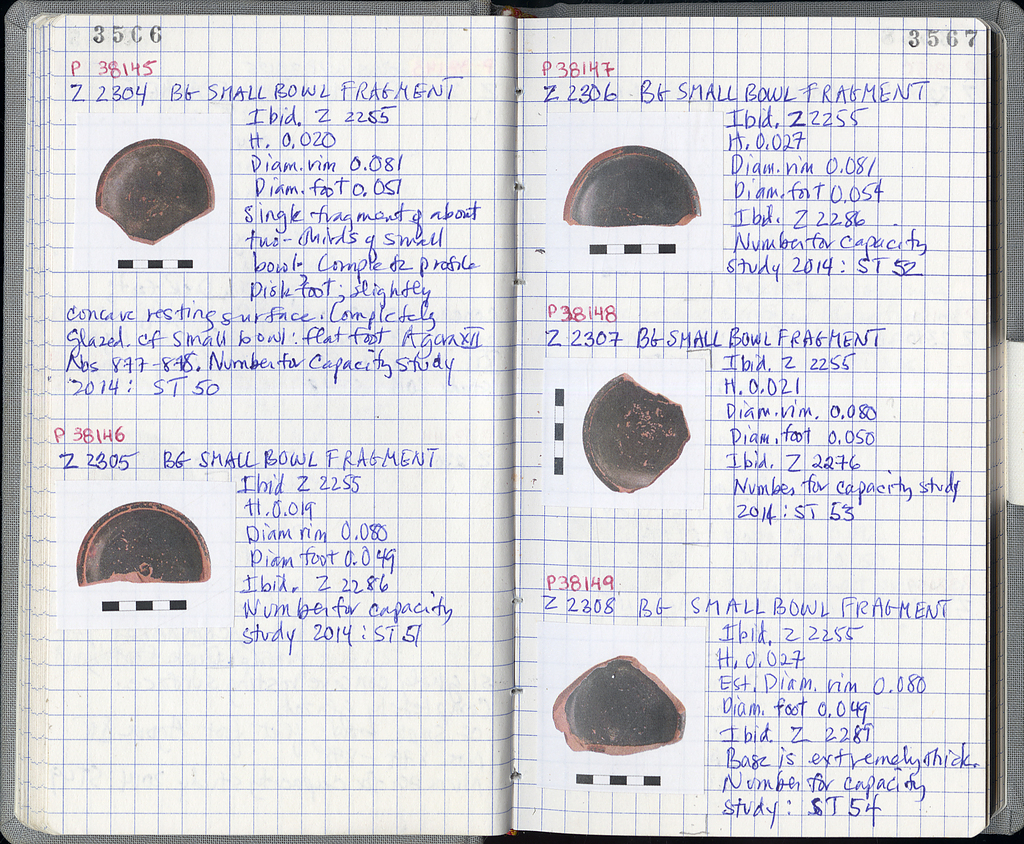 3506
P 38145
Z 2304 BG SMALL BOWL FRAGMENT
Ibid. Z 2255
H. 0.020
Diam. rim 0.081
Diam. foot 0.051
Single fragment of about
two-thirds of small
bowl. Complete profile
Disk foot; slightly
concave resting surface. Completely
Glazed. cf small bowl: flat foot Agora XII
Nos 877-878. Number for Capacity Study
2014: ST 50
P 38146
Z 2305 BG SMALL BOWL FRAGMENT
Ibid Z 2255
H. 0.019
Diam rim 0.080
Diam foot 0.049
Ibid. Z 2286
Number for capacity
study 2014: ST 51
3567
P 38147
Z 2306 BG SMALL BOWL FRAGMENT
Ibid. Z 2255
H. 0.027
Diam. rim 0.081
Diam. foot 0.054
Ibid. Z 2286
Number for Capacity
study 2014: ST 52
P 38148
Z 2307 BG SMALL BOWL FRAGMENT
Ibid. Z 2255
H. 0.021
Diam. rim. 0.080
Diam. foot 0.050
Ibid. Z 2276
Number for capacity study
2014: ST 53
P 38149
Z 2308 BG SMALL BOWL FRAGMENT
Ibid. Z 2255
H. 0.027
Est. Diam. rim 0.080
Diam. foot 0.049
Ibid. Z 2289
Base is extremely thick.
Number for capacity
study: ST 54